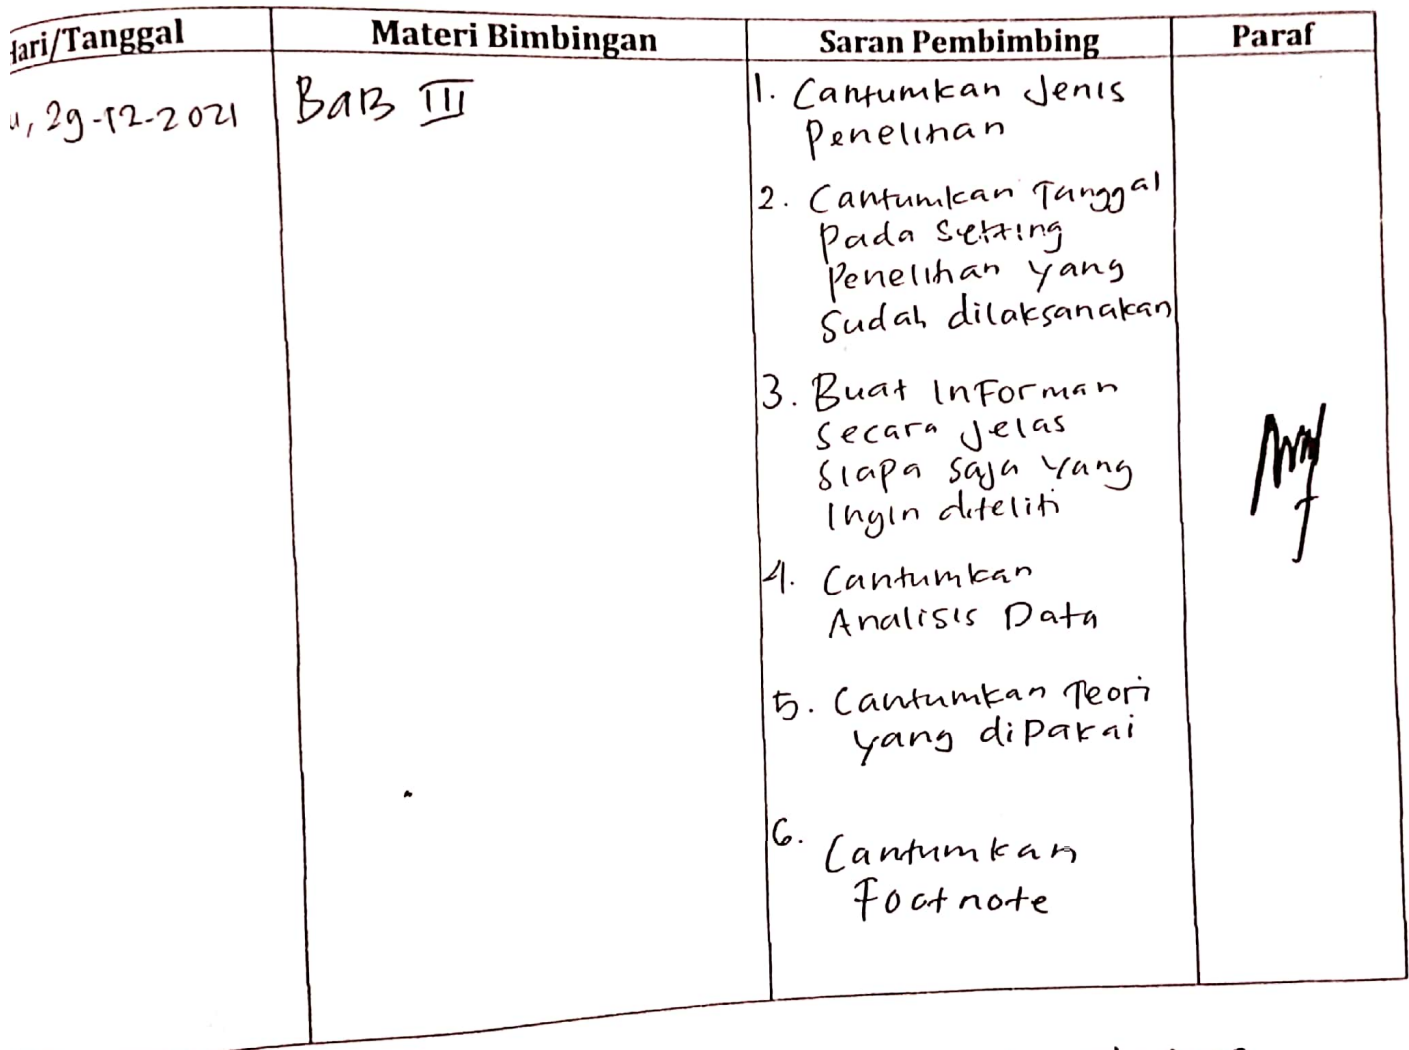 Hari/Tanggal
Materi Bimbingan
Saran Pembimbing
Paraf
u, 29-12-2021
BaB III
1. Cantumkan Jenis
Penelitian
2. Cantumkan Tanggal
Pada Setting
Penelitian yang
Sudah dilaksanakan
3. Buat Informan
Secara Jelas
Siapa saja yang
Ingin diteliti
4. Cantumkan
Analisis Data
5. Cantumkan Teori
yang diPakai
6. Cantumkan
Footnote